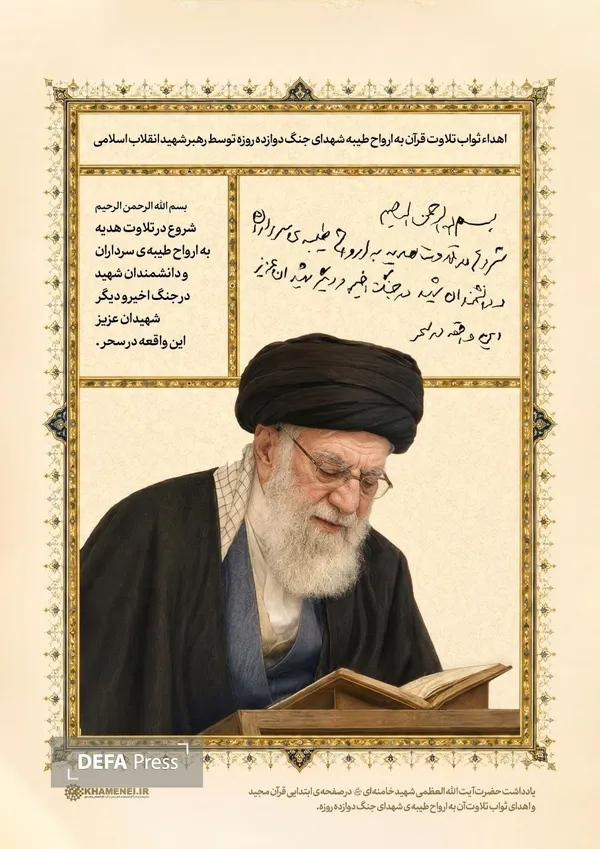 اهداء ثواب تلاوت قرآن به ارواح طیبه شهدای جنگ دوازده روزه توسط رهبر شهید انقلاب اسلامی
بسم الله الرحمن الرحیم
شروع در تلاوت هدیه به ارواح طیبه‌ی سرداران
و دانشمندان شهید در جنگ اخیر و دیگر شهیدان عزیز
این واقعه در سحر
بسم الله الرحمن الرحیم
شروع در تلاوت هدیه
به ارواح طیبه‌ی سرداران
و دانشمندان شهید
در جنگ اخیر و دیگر
شهیدان عزیز
این واقعه در سحر.
DEFA Press
KHAMENEI.IR
یادداشت حضرت آیت الله العظمی شهید خامنه‌ای در صفحه‌ی ابتدایی قرآن مجید
و اهدای ثواب تلاوت آن به ارواح طیبه‌ی شهدای جنگ دوازده روزه.